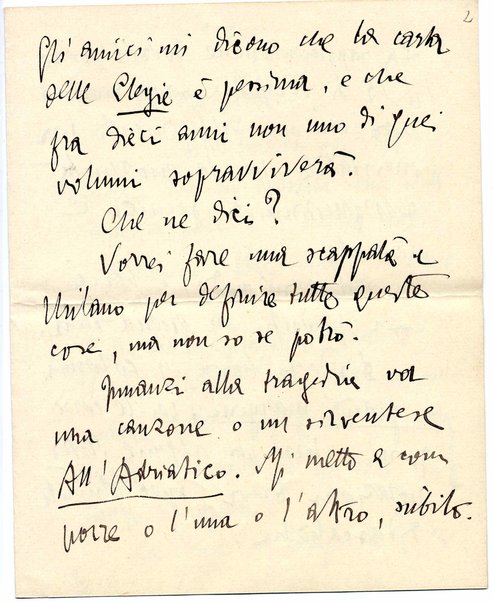 2
Gli amici mi dicono che la carta
delle Elegie è pessima, e che
fra dieci anni non uno di quei
volumi sopravviverà.
Che ne dici?
Vorrei fare una scappata a
Milano per definire tutte queste
cose, ma non so se potrò.
Innanzi alla tragedia va
una canzone o un sirventese
All'Adriatico. Mi metto a com
porre o l'una o l'altro, sùbito.